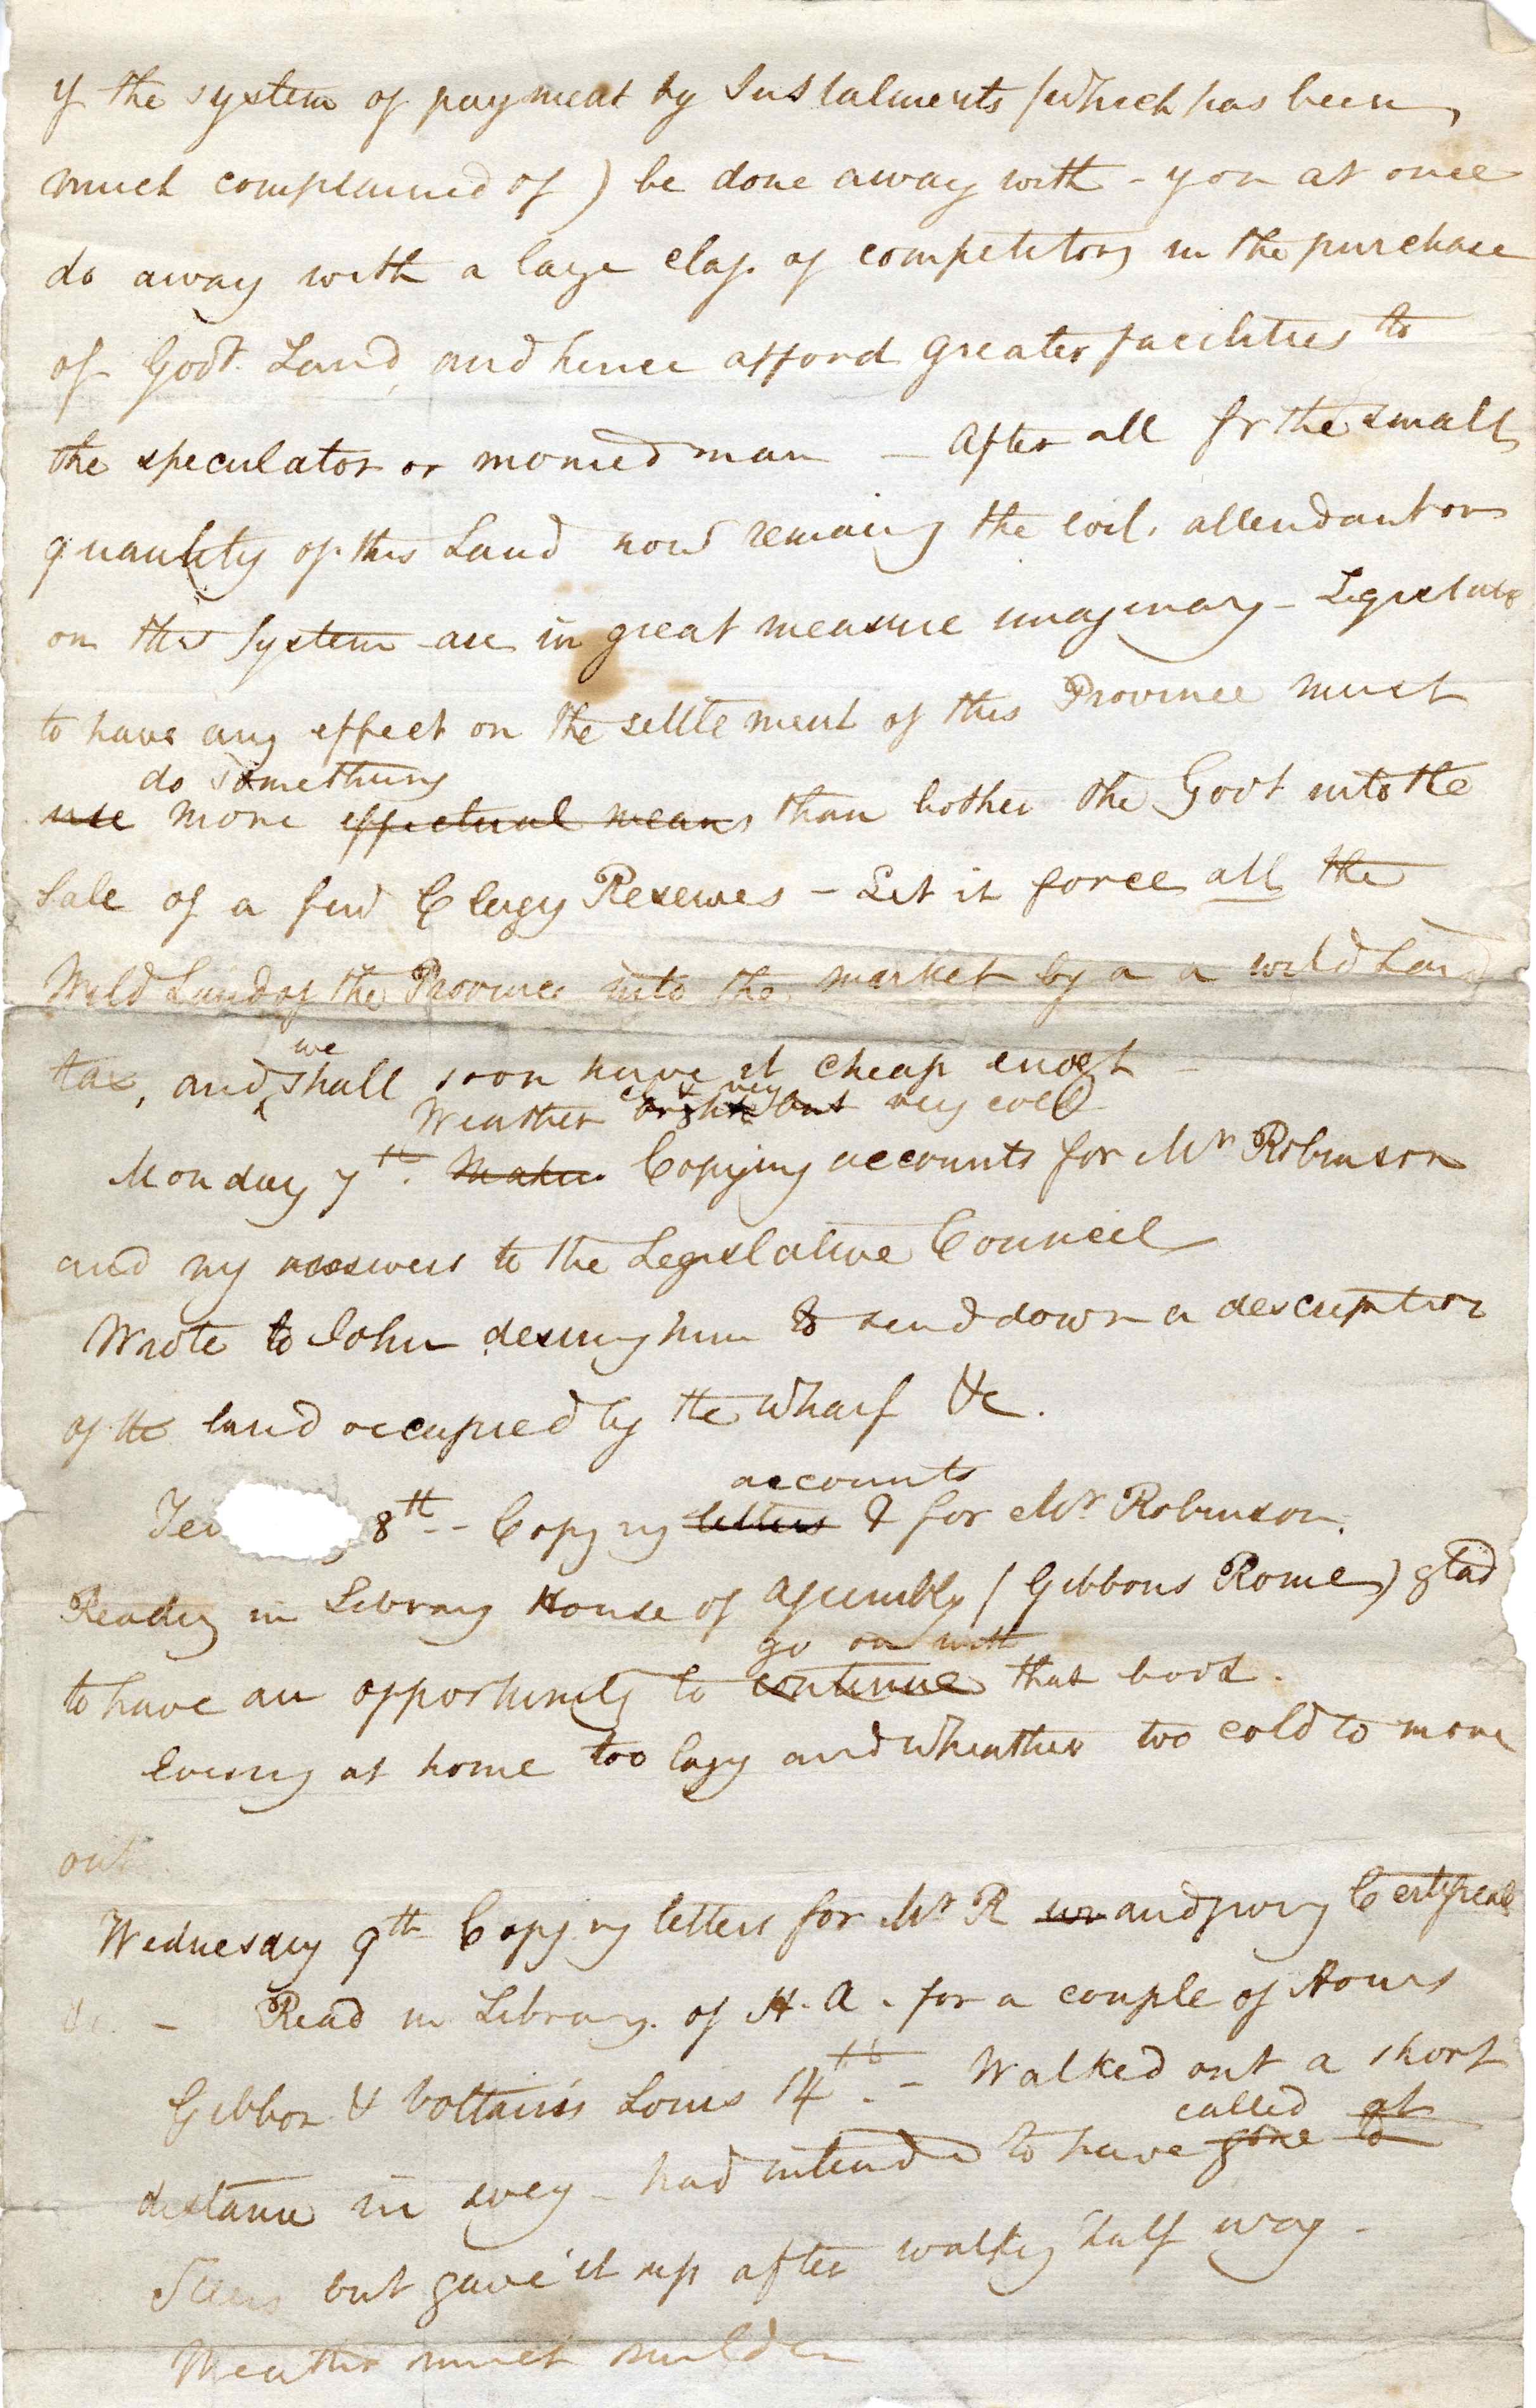 if the system of payment by Instalments (which has been
much complained of) be done away with - you at once
do away with a large class of competitors in the purchase
of Govt. Land, and hence afford greater facilities to
the speculator or monied man - After all for the small
quantity of this Land now remaing the evils attendant on
on this System are in great measure imaginary - Legislate
to have any effect on the settlement of this Province must
do something
use more effectual means than bother the Govt into the
Sale of a few Clergy Reserves - Let it force all the
Wild Land of the Province into the market by a a wild Land
tax, and shall soon have it cheap enough -
we
Weather bright but very cold
Monday 7th. Copying accounts for Mr Robinson
and my answers to the Legislative Council
Wrote to John desiring him to send down a description
of the land occupied by the Wharf &c.
accounts
8th - Copying letters & for Mr Robinson.
Reading in Library House of Assembly (Gibbons Rome) glad
go on with
to have an opportunity to continue that book.
Evening at home too lazy and Wheather too cold to move
out
Wednesday 9th Copying letters for Mr R and giving Certificate
&c. - Read in Library of H. A. for a couple of Hours
Gibbon & Voltair's Louis 14th. - Walked out a short
called at
distance in evey - had intended to have gone to
but gave it up after walking half way -
Weather much milder